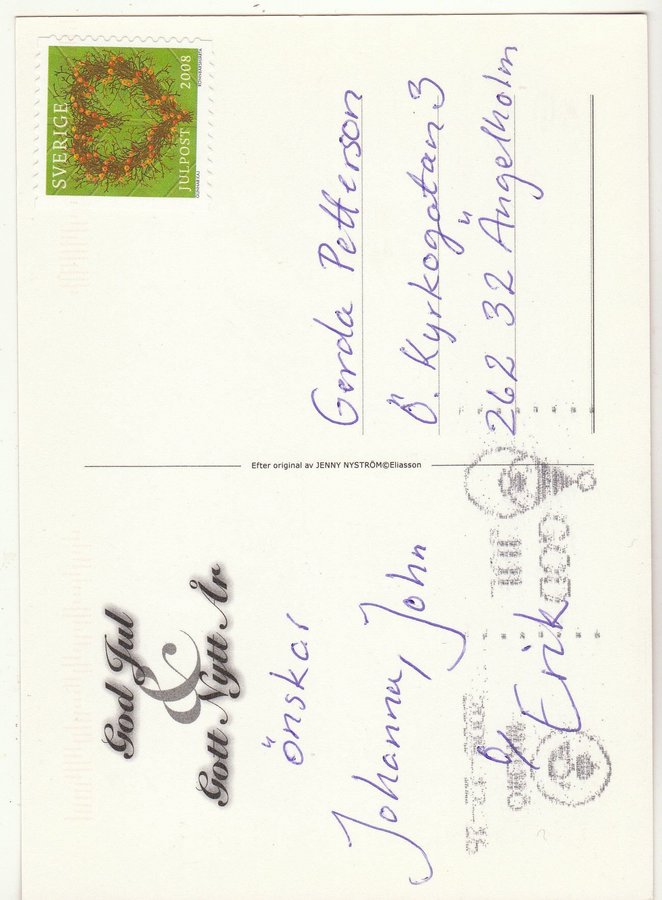 God Jul
&
Gott Nytt År
önskar
Johanna, John
& Erik
Efter original av JENNY NYSTRÖM©Eliasson
SVERIGE
JULPOST 2008
Gerda Petterson
Ö. Kyrkogatan 3
262 32 Ängelholm
GOD
JUL